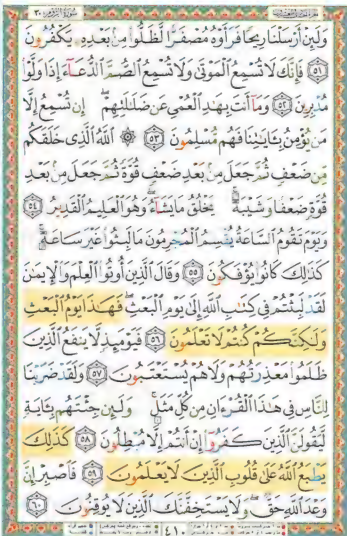 سُورَةُ الرُّومِ ٣٠
وَلَئِنْ أَرْسَلْنَا رِيحًا فَرَأَوْهُ مُصْفَرًّا لَّظَلُّوا۟ مِنۢ بَعْدِهِۦ يَكْفُرُونَ
٥١ فَإِنَّكَ لَا تُسْمِعُ ٱلْمَوْتَىٰ وَلَا تُسْمِعُ ٱلصُّمَّ ٱلدُّعَآءَ إِذَا وَلَّوْا۟
مُدْبِرِينَ ٥٢ وَمَآ أَنتَ بِهَـٰدِ ٱلْعُمْىِ عَن ضَلَـٰلَتِهِمْ ۖ إِن تُسْمِعُ إِلَّا
مَن يُؤْمِنُ بِـَٔايَـٰتِنَا فَهُم مُّسْلِمُونَ ٥٣ ۞ ٱللَّهُ ٱلَّذِى خَلَقَكُم
مِّن ضَعْفٍ ثُمَّ جَعَلَ مِنۢ بَعْدِ ضَعْفٍ قُوَّةً ثُمَّ جَعَلَ مِنۢ بَعْدِ
قُوَّةٍ ضَعْفًا وَشَيْبَةً ۚ يَخْلُقُ مَا يَشَآءُ ۖ وَهُوَ ٱلْعَلِيمُ ٱلْقَدِيرُ ٥٤
وَيَوْمَ تَقُومُ ٱلسَّاعَةُ يُقْسِمُ ٱلْمُجْرِمُونَ مَا لَبِثُوا۟ غَيْرَ سَاعَةٍ ۚ
كَذَٰلِكَ كَانُوا۟ يُؤْفَكُونَ ٥٥ وَقَالَ ٱلَّذِينَ أُوتُوا۟ ٱلْعِلْمَ وَٱلْإِيمَـٰنَ
لَقَدْ لَبِثْتُمْ فِى كِتَـٰبِ ٱللَّهِ إِلَىٰ يَوْمِ ٱلْبَعْثِ ۖ فَهَـٰذَا يَوْمُ ٱلْبَعْثِ
وَلَـٰكِنَّكُمْ كُنتُمْ لَا تَعْلَمُونَ ٥٦ فَيَوْمَئِذٍ لَّا يَنفَعُ ٱلَّذِينَ
ظَلَمُوا۟ مَعْذِرَتُهُمْ وَلَا هُمْ يُسْتَعْتَبُونَ ٥٧ وَلَقَدْ ضَرَبْنَا
لِلنَّاسِ فِى هَـٰذَا ٱلْقُرْءَانِ مِن كُلِّ مَثَلٍ ۚ وَلَئِن جِئْتَهُم بِـَٔايَةٍ
لَّيَقُولَنَّ ٱلَّذِينَ كَفَرُوٓا۟ إِنْ أَنتُمْ إِلَّا مُبْطِلُونَ ٥٨ كَذَٰلِكَ
يَطْبَعُ ٱللَّهُ عَلَىٰ قُلُوبِ ٱلَّذِينَ لَا يَعْلَمُونَ ٥٩ فَٱصْبِرْ إِنَّ
وَعْدَ ٱللَّهِ حَقٌّ ۖ وَلَا يَسْتَخِفَّنَّكَ ٱلَّذِينَ لَا يُوقِنُونَ ٦٠
٤١٠